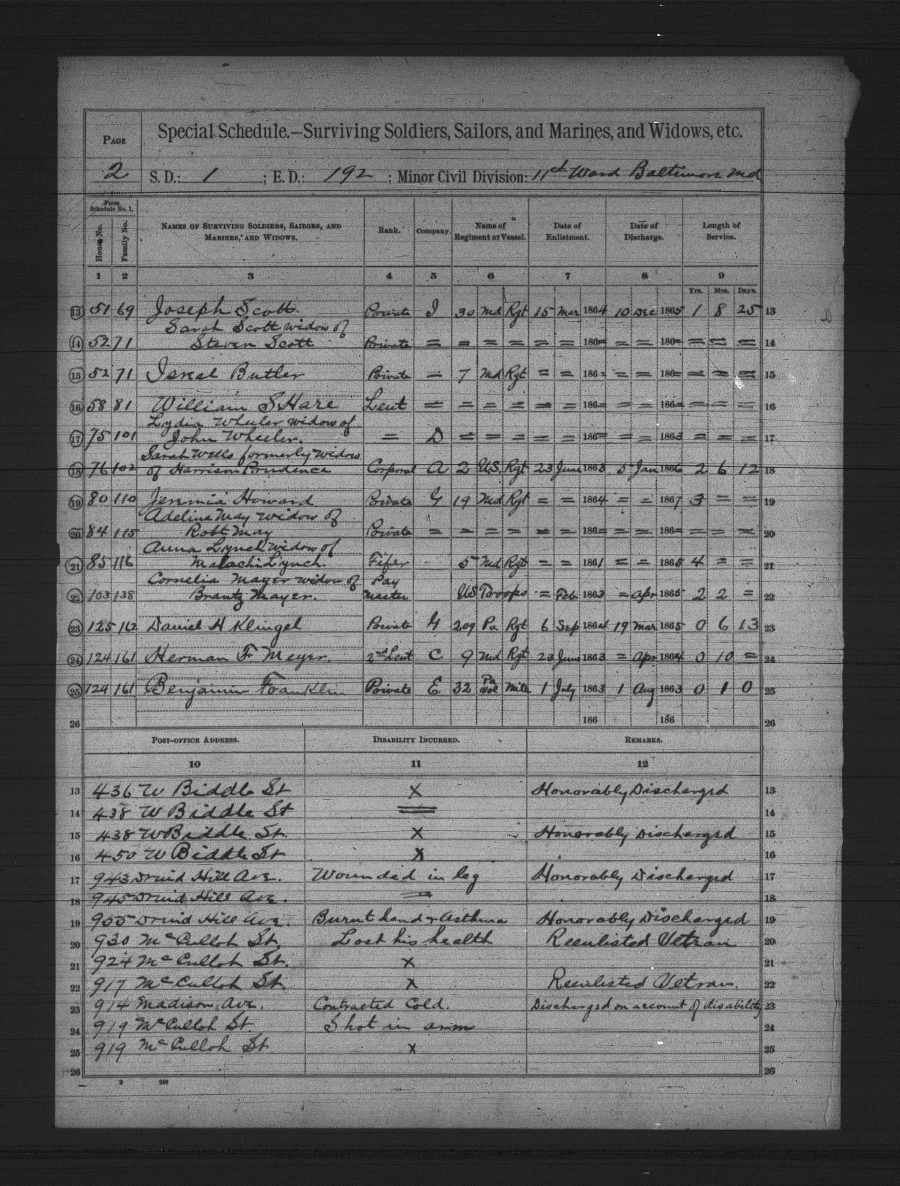 PAGE
2
Special Schedule.—Surviving Soldiers, Sailors, and Marines, and Widows, etc.
S. D.: 1 ; E. D.: 192 ; Minor Civil Division: 11th Ward Baltimore Md
From Schedule No. 1.
House No. Family No. NAMES OF SURVIVING SOLDIERS, SAILORS, AND MARINES, AND WIDOWS. Rank. Company. Name of Regiment or Vessel. Date of Enlistment. Date of Discharge. Length of Service.
1 2 3 4 5 6 7 8 9
Yrs. Mos. Days.
13 51 69 Joseph Scott Private I 30 Md Rgt 15 Mar 1864 10 Dec 1865 1 8 25 13
Sarah Scott widow of
14 52 71 Steven Scott Private = = = = = = 186= = = 186= = = = 14
15 52 71 Isreal Butler Private — 7 Md Rgt = = 186= = = 186= = = = 15
16 58 81 William S Hare Leut = = = = = = 186= = = 186= = = = 16
Lydia Wheeler widow of
17 75 101 John Wheeler. = D = = = = = 186= = = 1863 = = = 17
Sarah Wells formerly widow
18 76 102 of Harrison Prudence Corporal A 2 U.S. Rgt 23 June 1863 5 Jan 1866 2 6 12 18
19 80 110 Jeremia Howard Private G 19 Md Rgt = = 1864 = = 1867 3 = = 19
Adeline May widow of
20 84 115 Robt May Private = = = = = = 186= = = 186= = = = 20
Anna Lynch widow of
21 85 116 Malachi Lynch. Fifer 5 Md Rgt = = 1861 = = 1865 4 = = 21
Cornelia Mayer widow of Pay
22 103 138 Brantz Mayer. Master US Troops = Feb 1863 = Apr 1865 2 2 = 22
23 125 162 Daniel H Klingel Private G 209 Pa Rgt 6 Sep 1864 19 Mar 1865 0 6 13 23
24 124 161 Herman F. Meyer. 2nd Leut C 9 Md Rgt 23 June 1863 = Apr 1864 0 10 = 24
25 124 161 Benjamin Franklin Private E 32 Pa Vol Mili 1 July 1863 1 Aug 1863 0 1 0 25
26 186 186 26
POST-OFFICE ADDRESS. DISABILITY INCURRED. REMARKS.
10 11 12
13 436 W Biddle St X Honorably Discharged 13
14 438 W Biddle St = 14
15 438 W Biddle St. X Honorably Discharged 15
16 450 W Biddle St X 16
17 943 Druid Hill Ave. Wounded in leg Honorably Discharged 17
18 945 Druid Hill Ave. = 18
19 955 Druid Hill Ave. Burnt hand & Asthma Honorably Discharged 19
20 930 McCulloh St. Lost his health Reenlisted Vetran 20
21 924 McCulloh St. X 21
22 917 McCulloh St. X Reenlisted Vetran 22
23 914 Madison Ave. Contracted Cold. Discharged on account of disability 23
24 919 McCulloh St. Shot in arm 24
25 919 McCulloh St X 25
26 26